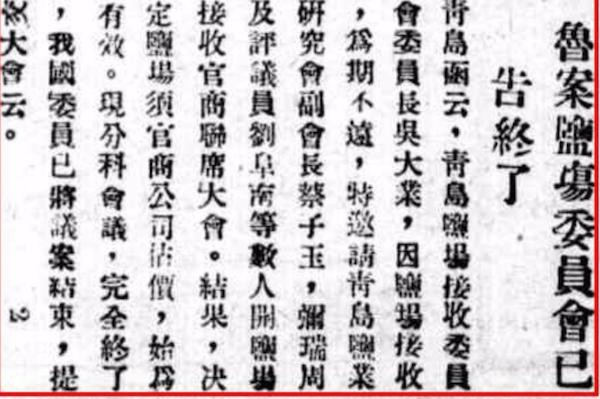 魯案鹽場委員會已
告終了
青島函云，青島鹽場接收委員
會委員長吳大業，因鹽場接收
，爲期不遠，特邀請靑島鹽業
研究會副會長蔡子玉，彌瑞周
及評議員劉阜南等數人開鹽場
接收官商聯席大會。結果，决
定鹽場須官商公司估價，始爲
有效。現分科會議，完全終了
，我國委員已將議案結束，提
大會云。
2